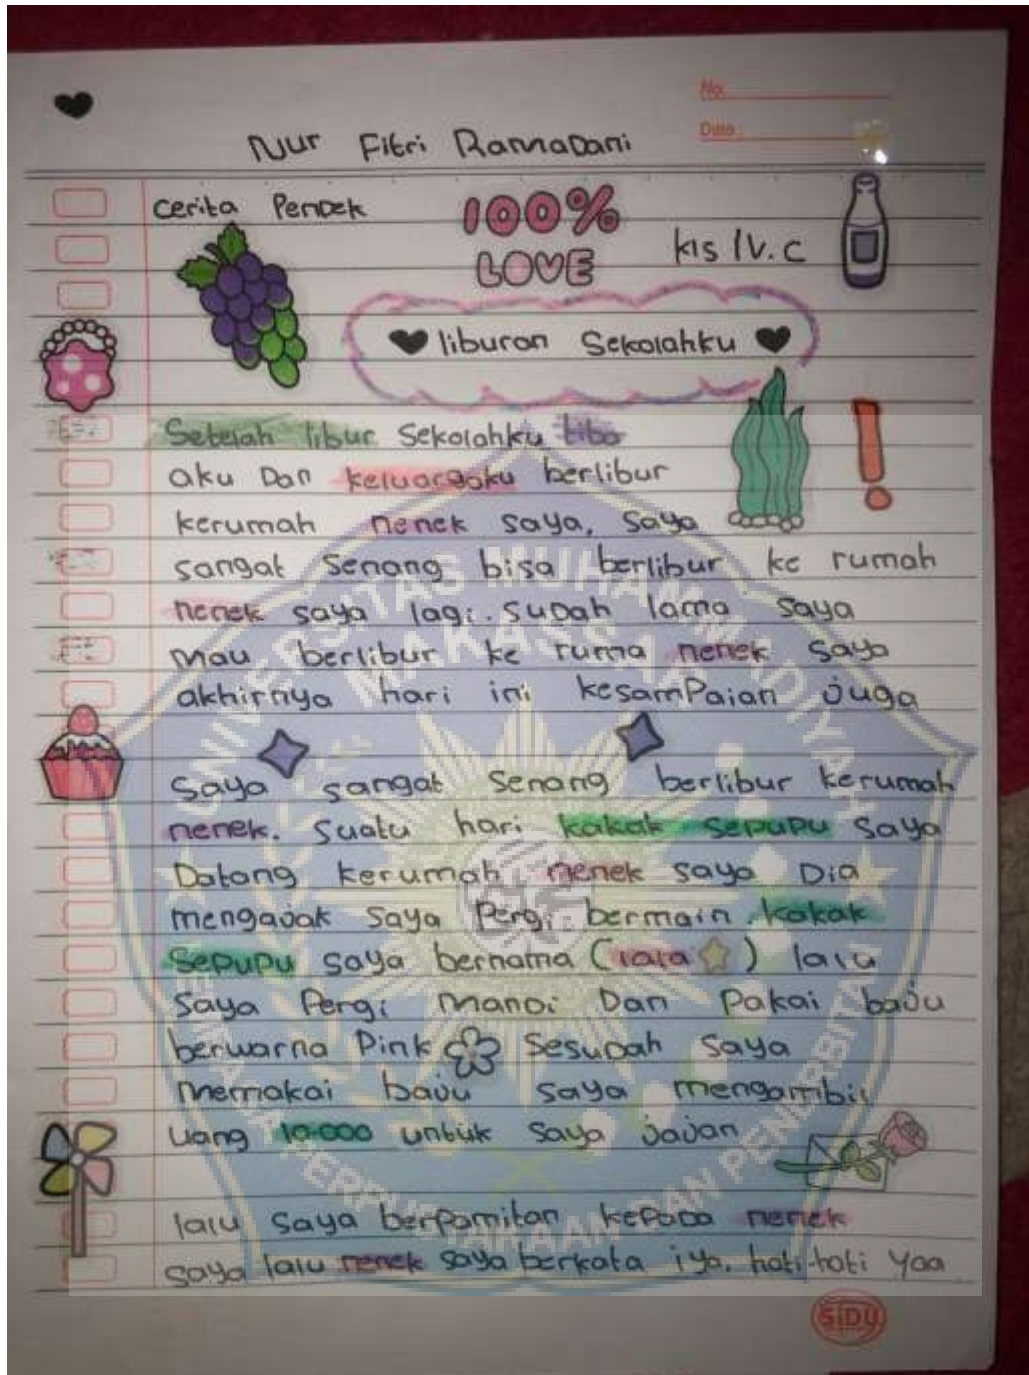 No.
Date:
Nur Fitri Ramadani
cerita Pendek
100%
LOVE
kls IV.C
liburan Sekolahku
Setelah libur Sekolahku tiba
aku Dan keluargaku berlibur
kerumah nenek saya, saya
sangat Senang bisa berlibur ke rumah
nenek saya lagi. sudah lama saya
mau berlibur ke ruma nenek saya
akhirnya hari ini kesamPaian juga
Saya sangat Senang berlibur kerumah
nenek. Suatu hari kakak sepupu saya
Datang kerumah nenek saya Dia
mengajak saya Pergi bermain kakak
Sepupu saya bernama (lala ) lalu
saya Pergi mandi Dan Pakai baju
berwarna Pink Sesudah saya
memakai baju saya mengambil
uang 10.000 untuk saya jajan
lalu saya berpamitan kepada nenek
saya lalu nenek saya berkata iya, hati-hati yaa
SiDU
UNIVERSITAS MUHAMMADIYAH
MAKASSAR
PERPUSTAKAAN DAN PENERBITAN